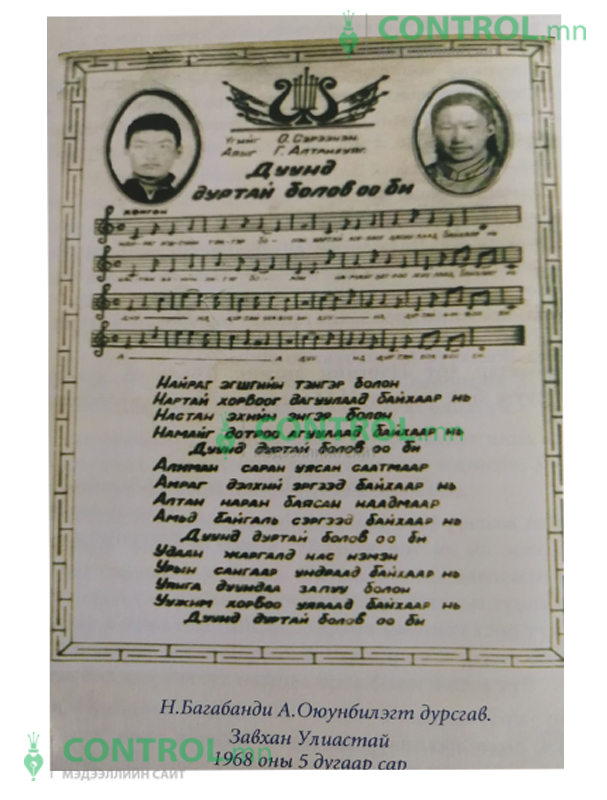 CONTROL.mn
Үгийг О. Сэрээнэн.
Аяыг Г. Алтанхуяг.
Дуунд
дуртай болов оо би
Хөнгөн
Найраг эгшгийн тэнгэр болон
Нартай хорвоог дагуулаад байхаар нь
Настан эхийн энгэр болон
Намайг дотроо агуулаад байхаар нь
Дуунд дуртай болов оо би
CONTROL.mn
МЭДЭЭЛЛИЙН САЙТ
Алиман саран уясан саатмаар
Амраг дэлхий эргээд байхаар нь
Алтан наран баясан наадмаар
Амьд байгаль сэргээд байхаар нь
Дуунд дуртай болов оо би
Удаан жаргалд нас нэмэн
Урын сангаар ундраад байхаар нь
Уянга дуундаа залуу болон
Уужим хорвоо уяраад байхаар нь
Дуунд дуртай болов оо би
Н.Багабанди А.Оюунбилэгт дурсгав.
Завхан Улиастай
1968 оны 5 дугаар сар
CONTROL.mn
МЭДЭЭЛЛИЙН САЙТ